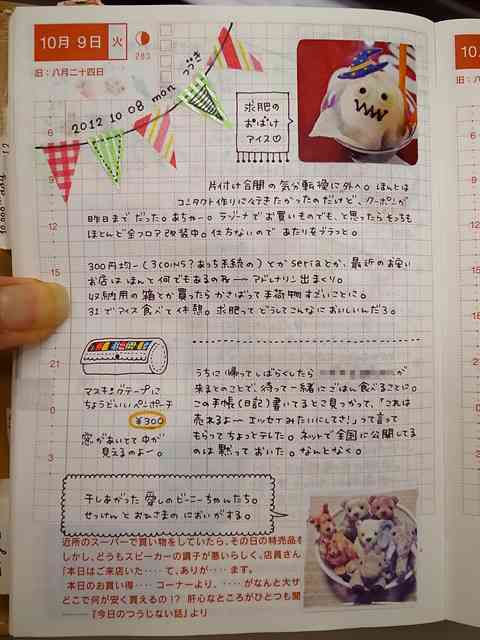 10月 9日 火
283
旧：八月二十四日
2012 10 08 mon つづき
求肥の
おばけ
アイス
6
9
12
15
18
21
0
3
片付け合間の気分転換に外へ。ほんとは
コンタクト作りに行きたかったのだけど、クーポンが
昨日まで だった。あちゃー。ラゾーナでお買いものでも、と思ったらそっちも
ほとんど全フロア改装中。仕方ないので あたりをブラっと。
300円均一(3COINS?あっち系統の)とかseriaとか、最近のお安い
お店は ほんと何でもあるのねー アドレナリン出まくり。
収納用の箱とか買ったら かさばって手荷物すごいことに。
31でアイス食べて休憩。求肥ってどうしてこんなにおいしいんだろ。
マスキングテープに
ちょうどいいペンポーチ
¥300
窓があいてて中が
見えるのよー。
うちに帰ってしばらくしたら が
来るとのことで、待って一緒にごはん食べることに。
この手帳(日記)書いてるとこ見つかって、「これは
売れるよー エッセイみたいにしてさ!」って言って
もらってちょっとテレた。ネットで全国に公開してる
のは黙って おいた。なんとなく。
干しあがった 愛しのビーニーちゃんたち。
せっけんとおひさまの においがする。
近所のスーパーで買い物をしていたら、その日の特売品を
しかし、どうもスピーカーの調子が悪いらしく、店員さん
「本日はご来店いた‥‥て、ありが‥‥ます。
本日のお買い得‥‥コーナーより、‥‥がなんと大サ
どこで何が安く買えるの!? 肝心なところがひとつも聞
『今日のつうじない話』より
10
旧：八